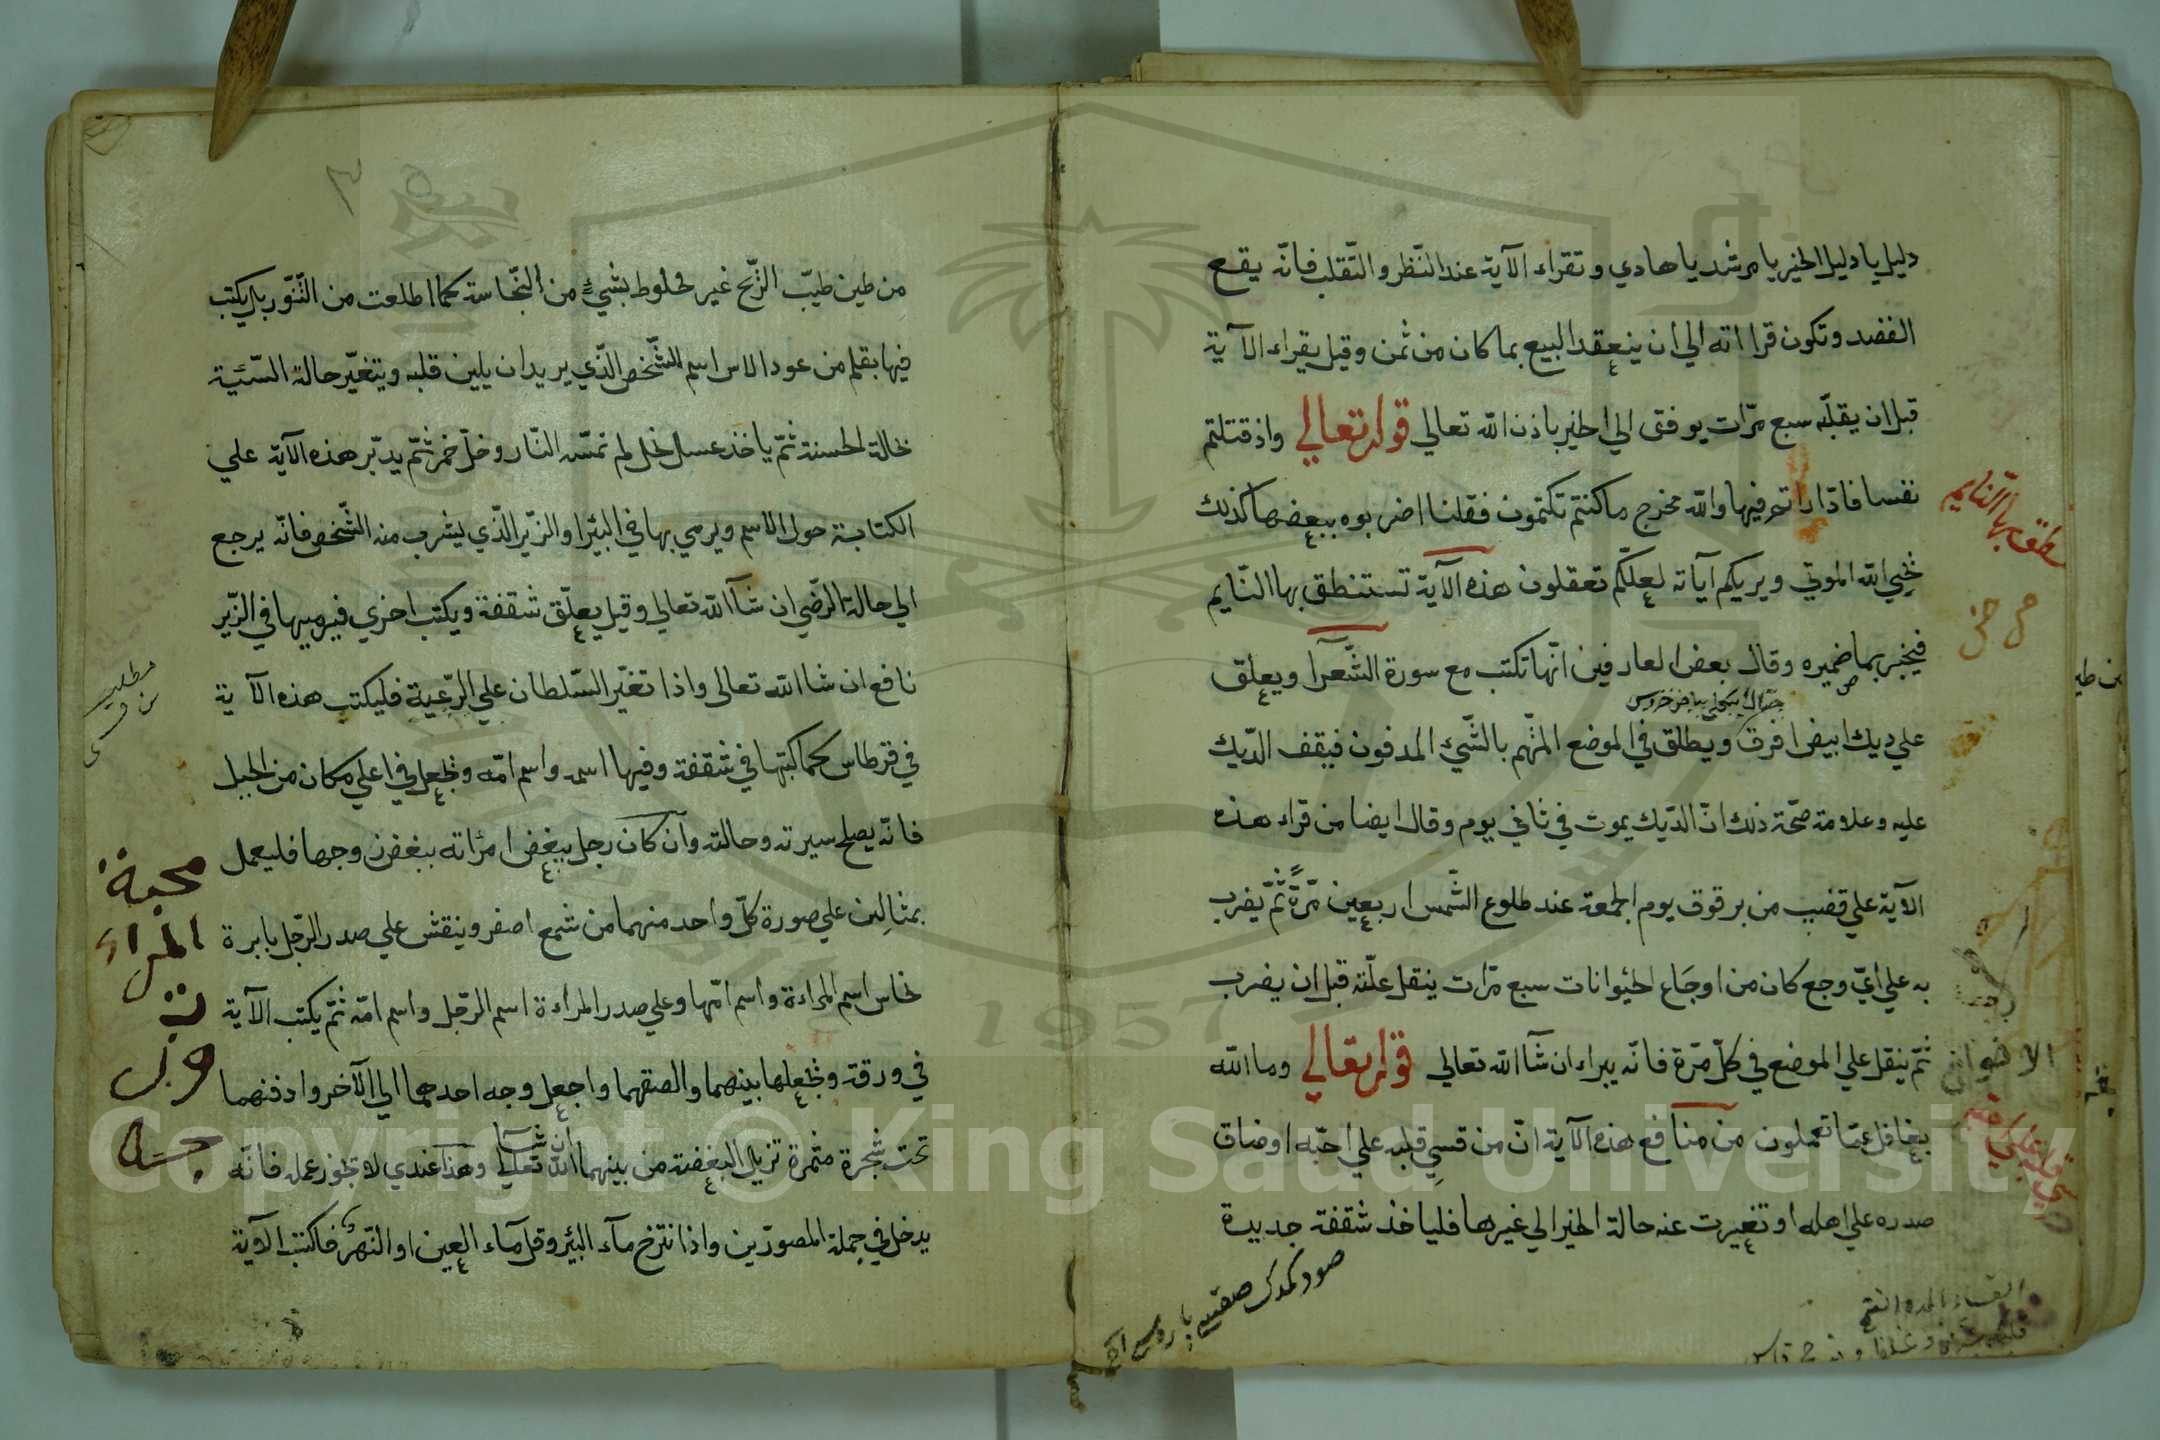 دليل يا دليل الخير يا مرشد يا هادي و تقراء الآية عند النّظر و التّقلب فانّه يقع
الفضد وتكون قرااته الي ان ينعقد البيع بما كان من ثمن وقيل يقراء الآية
قبل ان يقبلّه سبع مرّات يوفق الي الخير باذن الله تعالي قوله تعالي واذ قتلتم
نفسا فادّاراتم فيها والله مخرج ما كنتم تكتمون فقلنا اضربوه ببعضها كذلك
يُحْيِي الله الموتي ويريكم آياته لعلّكم تعقلون هذه الآية تستنطق بها النّايم
فيخبر بما ضميره وقال بعض العارفين انّها تكتب مع سورة الشّعرآ ويعلق
علي ديك ابيض افرق ويطلق في الموضع المتّهم بالشّيء المدفون فيقف الدّيك
عليه وعلامة صحّة ذلك انّ الدّيك يموت في ثاني يوم وقال ايضا من قراء هذه
الآية علي قضيب من برقوق يوم الجمعة عند طلوع الشّمس اربعين مرّةً ثمّ يضرب
به علي ايّ وجع كان من اوجَاع الحيوانات سبع مرّات ينقل علّته قبل ان يضرب
ثمّ ينقل علي الموضع في كلّ مرّة فانّه يبراء ان شآ الله تعالي قوله تعالي وما الله
بغافل عمّا تعملون من منافع هذه الآية انّ من قسي قلبه علي احبّه او ضاق
صدره علي اهله او تغيرت عنه حالة الخير الي غيرها فلياخذ شقفة جديدة
من طين طيّب الرّيح غير مخلوط بشيءٍ من النّجاسة كما اطلعت من التّنّور بال يكتب
فيها بقلم من عود الاس اسم الشّخص الّذي يريد ان يلين قلبه ويتغيّر حالة السّئية
بحالة الحسنة ثمّ ياخذ عسل نحل لم تمسّه النّار وخلّ خمر ثمّ يدبّر هذه الآية علي
الكتابة حول الاسم ويرمي بها في البئر او الزّير الّذي يشرب منه الشّخص فانّه يرجع
الي حالة الرّضي ان شآ الله تعالي وقيل يعلّق شقفة ويكتب اخري فيرميها في الزّير
نافع ان شا الله تعالي واذا تغيّر السّلطان علي الرّعية فليكتب هذه الآية
في قرطاس كما كتبها في شقفة وفيها اسمه واسم امّه وتجعل في اعلي مكان من الجبل
فانّه يصلح سيرته وحالته وان كان رجل يبغض امرأته ببغض زوجها فليعمل
بمثالين علي صورة كلّ واحد منهما من شمع اصفر وينقش علي صدر الرّجل بابرة
نحاس اسم المراءة واسم امّها وعلي صدر المراءة اسم الرّجل واسم امّه ثمّ يكتب الآية
في ورقة وتجعلها بينهما والصقهما واجعل وجه احدهما الي الآخر وادفنهما
تحت شجرة مثمرة تزيل البغضة من بينهما ان شآ الله تعالي وهذا عندي لا تجوز عمله فانّه
يدخل في جملة المصوّرين واذا نتزح مآء البئر وقل مآء العين او النّهر فاكتب الآية
محبة
المراء